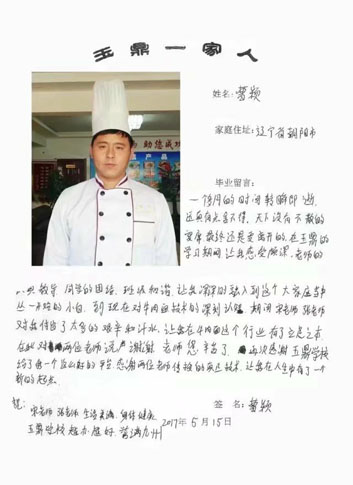 玉鼎一家人
姓名:
颖
家庭住址: 辽宁省朝阳市
助您成功
毕业留言:
一个月的时间转瞬即逝
还真有点舍不得, 天下没有不散的
宴席 最终还是要离开的, 在玉鼎的
学习期间 让我感受颇深, 老师的
教导 同学的团结, 班级和谐, 让我深深的融入到这个大家庭当中
从一开始的小白, 到现在对牛肉面技术的深刻认识 期间 宋老师 张老师
对我付出了太多的艰辛和汗水, 让我在牛肉面这个行业有了立足之本
在此对两位老师说声谢谢 老师您辛苦了 再次感谢玉鼎学校
给了我一个这么好的平台, 感谢两位老师传授的技术, 让我在人生中有了一个
新的起点
祝: 宋老师 张老师 生活美满, 身体健康
玉鼎学校越办越好 誉满九州
签名:
颖
2017年5月15日